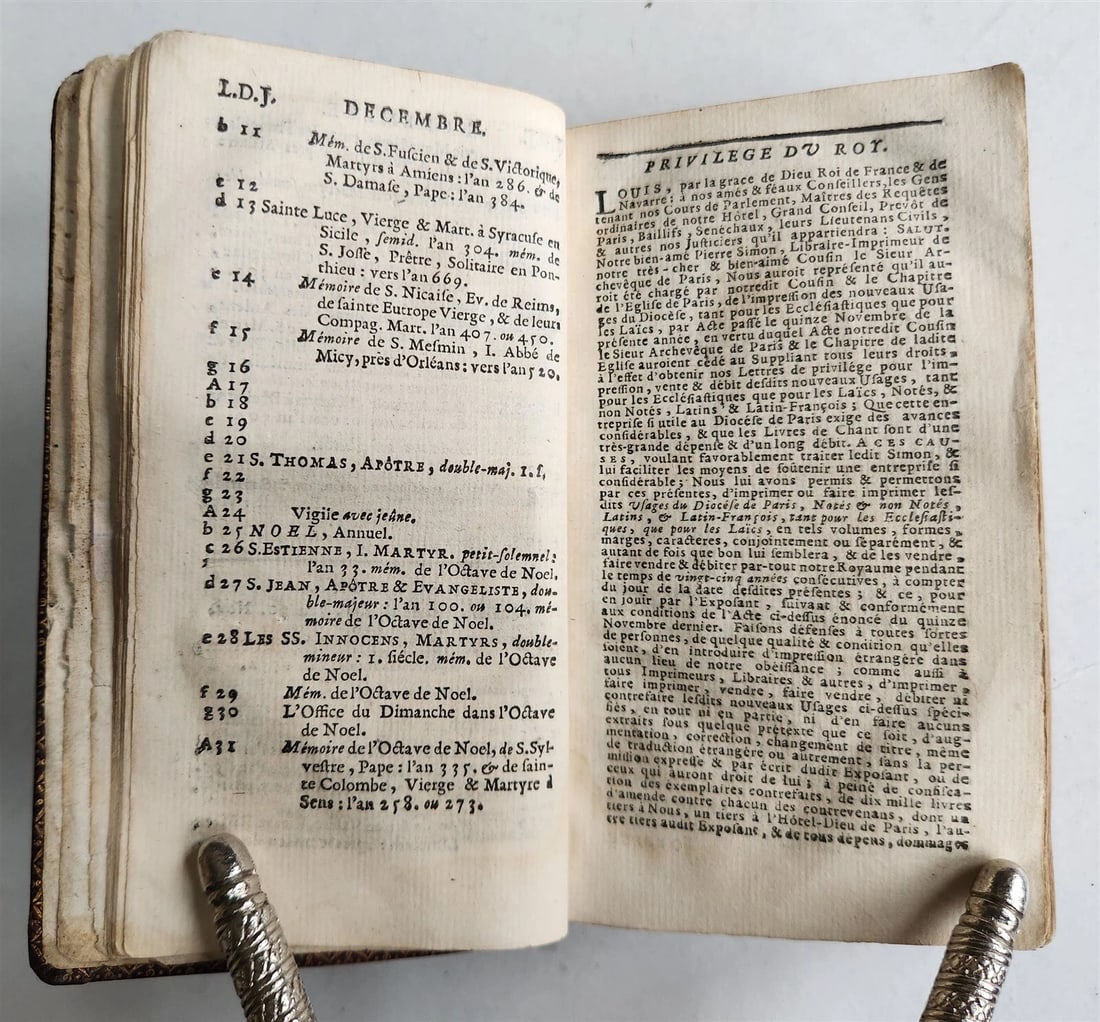 L.D.J. DECEMBRE.
b 11 Mém. de S. Fuscien & de S. Victorique,
Martyrs à Amiens : l'an 286. & de
S. Damase, Pape : l'an 384.
c 12
d 13 Sainte Luce, Vierge & Mart. à Syracuse en
Sicile, semid. l'an 304. mém. de
S. Josse, Prêtre, Solitaire en Pon-
thieu : vers l'an 669.
e 14 Mémoire de S. Nicaise, Ev. de Reims,
de sainte Eutrope Vierge, & de leurs
Compag. Mart. l'an 407. ou 450.
f 15 Mémoire de S. Mesmin, I. Abbé de
Micy, près d'Orléans : vers l'an 520.
g 16
A 17
b 18
c 19
d 20
e 21 S. THOMAS, APÔTRE, double-maj. 1. s,
f 22
g 23
A 24 Vigile avec jeûne.
b 25 NOEL, Annuel.
c 26 S. ESTIENNE, I. MARTYR. petit-solemnel :
l'an 33. mém. de l'Octave de Noel.
d 27 S. JEAN, APÔTRE & EVANGELISTE, dou-
ble-majeur : l'an 100. ou 104. mé-
moire de l'Octave de Noel.
e 28 LES SS. INNOCENS, MARTYRS, double-
mineur : 1. siécle. mém. de l'Octave
de Noel.
f 29 Mém. de l'Octave de Noel.
g 30 L'Office du Dimanche dans l'Octave
de Noel.
A 31 Mémoire de l'Octave de Noel, de S. Syl-
vestre, Pape : l'an 335. & de sain-
te Colombe, Vierge & Martyre à
Sens : l'an 258. ou 273.
PRIVILEGE DU ROY.
LOUIS, par la grace de Dieu Roi de France & de
Navarre : à nos amés & féaux Conseillers, les Gens
tenant nos Cours de Parlement, Maîtres des Requêtes
ordinaires de notre Hôtel, Grand Conseil, Prevôt de
Paris, Baillifs, Senéchaux, leurs Lieutenans Civils,
& autres nos Justiciers qu'il appartiendra : SALUT.
Notre bien-amé Pierre Simon, Libraire-Imprimeur de
notre très-cher & bien-amé Cousin le Sieur Ar-
chevêque de Paris, Nous auroit représenté qu'il au-
roit été chargé par notredit Cousin & le Chapitre
de l'Eglise de Paris, de l'impression des nouveaux Usa-
ges du Diocèse, tant pour les Ecclésiastiques que pour
les Laïcs, par Acte passé le quinze Novembre de la
présente année, en vertu duquel Acte notredit Cousin
le Sieur Archevêque de Paris & le Chapitre de ladite
Eglise auroient cédé au Suppliant tous leurs droits,
à l'effet d'obtenir nos Lettres de privilége pour l'im-
pression, vente & débit desdits nouveaux Usages, tant
pour les Ecclésiastiques que pour les Laïcs, Notés, &
non Notés, Latins & Latin-François ; Que cette en-
treprise si utile au Diocése de Paris exige des avances
considérables, & que les Livres de Chant sont d'une
très-grande dépense & d'un long débit. A CES CAU-
SES, voulant favorablement traiter ledit Simon, &
lui faciliter les moyens de soûtenir une entreprise si
considérable ; Nous lui avons permis & permettons
par ces présentes, d'imprimer ou faire imprimer les-
dits Usages du Diocése de Paris, Notés & non Notés,
Latins, & Latin-François, tant pour les Ecclesiasti-
ques, que pour les Laïcs, en tels volumes, formes,
marges, caractères, conjointement ou séparément, &
autant de fois que bon lui semblera, & de les vendre,
faire vendre & débiter par-tout notre Royaume pendant
le temps de vingt-cinq années consécutives, à compter
du jour de la date desdites présentes ; & ce, pour
en jouir par l'Exposant, suivant & conformément
aux conditions de l'Acte ci-dessus énoncé du quinze
Novembre dernier. Faisons défenses à toutes sortes
de personnes, de quelque qualité & condition qu'elles
soient, d'en introduire d'impression étrangère dans
aucun lieu de notre obéissance ; comme aussi à
tous Imprimeurs, Libraires & autres, d'imprimer,
faire imprimer, vendre, faire vendre, débiter ni
contrefaire lesdits nouveaux Usages ci-dessus spéci-
fiés, en tout ni en partie, ni d'en faire aucuns
extraits sous quelque prétexte que ce soit, d'aug-
mentation, correction, changement de titre, même
de traduction étrangère ou autrement, sans la per-
mission expresse & par écrit dudit Exposant, ou de
ceux qui auront droit de lui ; à peine de confisca-
tion des exemplaires contrefaits, de dix mille livres
d'amende contre chacun des contrevenans, dont un
tiers à Nous, un tiers à l'Hôtel-Dieu de Paris, l'au-
tre tiers audit Exposant, & de tous dépens, dommages